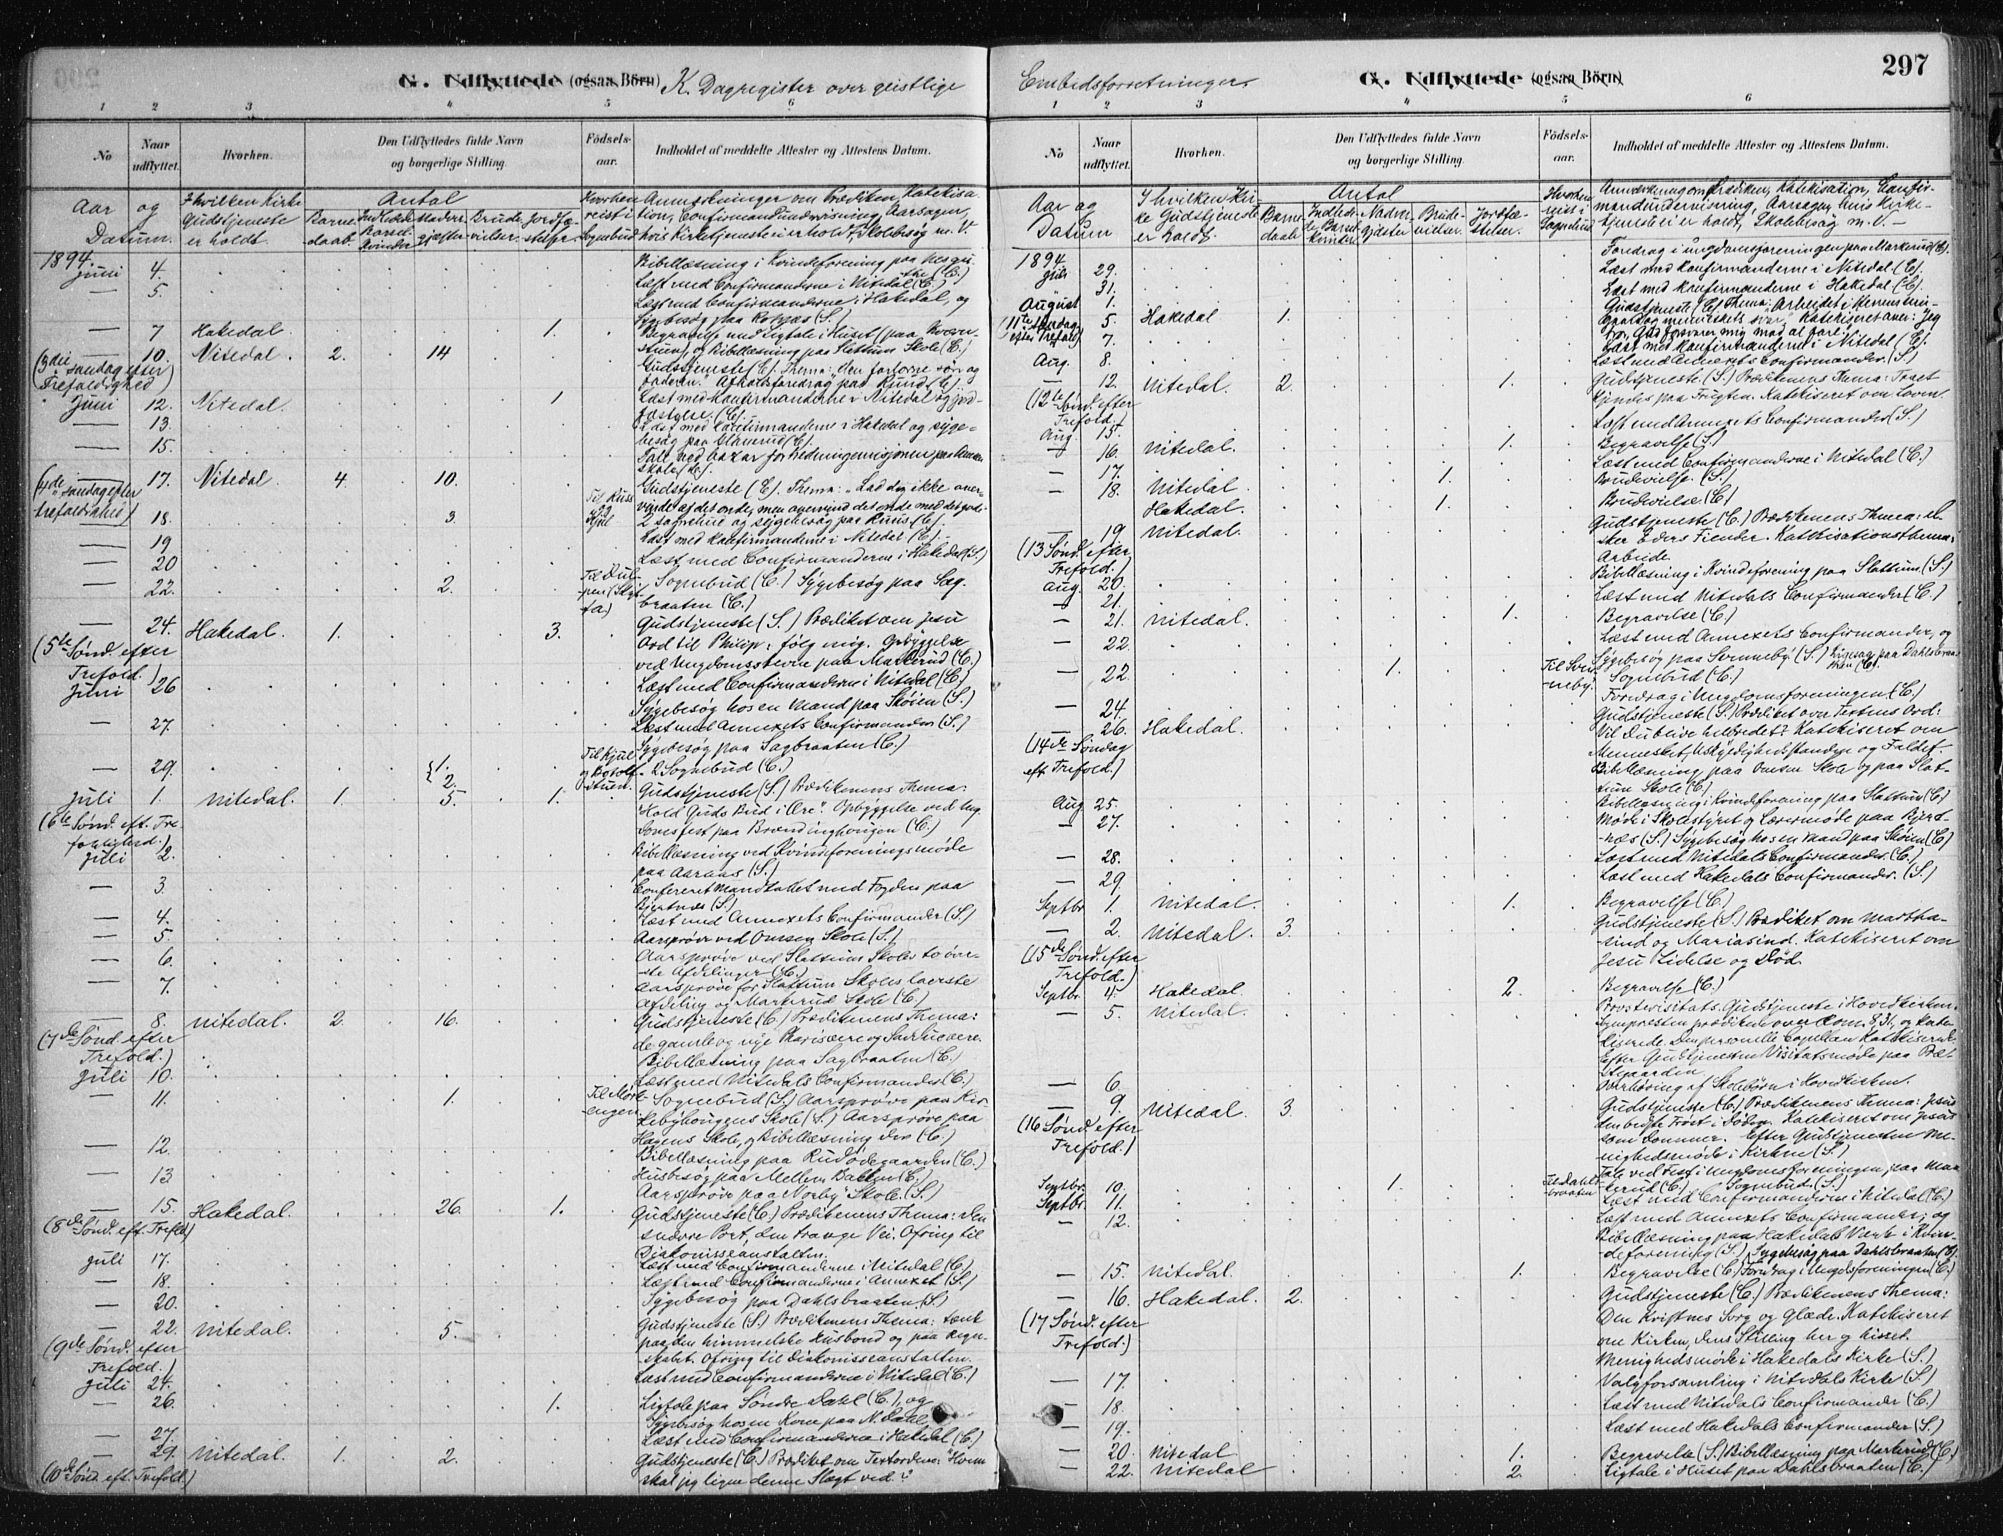 G. Udflyttede (ogsaa Börn) K. Dagregister over geistlige
1 2 3 4 5 6
No
Naar udflyttet.
Hvorhen.
Den Udflyttedes fulde Navn og borgerlige Stilling.
Födsels-aar.
Indholdet af meddelte Attester og Attestens Datum.
Aar og Datum.
I hvilken Kirke Gudstjeneste er holdt.
Antal
Barnedaab.
Brudevielser.
Anmærkninger om Prædiken, Katekisation, Confirmandundervisning, Aarsagen, hvis Kirketjeneste ei er holdt, Skolebesøg m. V.
1894.
Juni 4. Bibellæsning i Kvindeforening paa
— 5. Læst med Confirmanderne i Nitedal (C.)
Læst med Confirmanderne i Hakedal, og
Sygebesøg paa (S.)
— 7 Hakedal 1. Begravelse med Ligtale i Huset (paa
og Bibellæsning paa Slattum Skole (C.)
— 10. Nitedal. 2. 14 Gudstjeneste (C). Thema: den forlorne søn og
(3die søndag efter Trefoldighed)
faderen. Afholdsforedrag paa Rund (C).
Juni 12. Nitedal. 1 Læst med Konfirmanderne i Nitedal og jord-
fæstelse. (C).
— 13. Læst med Confirmanderne i Hakedal og syge-
besøg paa (C).
— 15. Tale ved bazar for hedningemisjonen paa
skole (C).
— 17. Nitedal 4. 10. Gudstjeneste (C). Thema: "Lad dig ikke over-
(4de søndag efter trefoldighed)
vinde af det onde, men overvind det onde med det gode"
— 18. 3. 2 sognebud og sygebesøg paa (C).
— 19 Læst med Konfirmanderne i Nitedal (C).
— 20 Læst med Confirmanderne i Hakedal (S.)
— 22. 2. Sognebud (C.) Sygebesøg paa Sag-
braaten (C.)
— 24. Hakedal. 1. 3. Gudstjeneste (S.) Prædiket om Jesu
(5te Sønd. efter Trefold.)
Ord til Philip: følg mig. Opbyggelse
ved Ungdomsstevne paa Markerud (C.)
Juni 26 Læst med Confirmanderne i Nitedal (C.)
Sygebesøg hos en Mand paa Skøien (S.)
— 27. Læst med Annexets Confirmander (S.)
Sygebesøg paa Sagbraaten (C.)
— 29. {1. 2. 2 Sognebud (C.)
Juli 1. Nitedal. 1. 5. 1. Gudstjeneste (S.) Prædikenens Thema:
(6te Sønd. eft. Trefoldighed.)
"Hold Guds Bud i Ære". Opbyggelse ved Ung-
domsfest paa (C.)
Juli 2. Bibellæsning ved Kvindeforeningsmøde
paa Aaraas (S.)
— 3. Confereret Mandtallet med Fogden paa
Bjertnæs (S.)
— 4. Læst med Annexets Confirmander (S.)
— 5. Aarsprøve ved Omsen Skole (S.)
— 6. Aarsprøve ved Slattum Skoles to øver-
ste Afdelinger (C.)
— 7. Aarsprøve for Slattum Skoles laveste
Afdeling og Markerud Skole (C.)
— 8. Nitedal. 2. 16. Gudstjeneste (C.) Prædikenens Thema:
(7de Sønd. efter Trefold.)
de gamle og nye Farisæere og Saducæere.
Bibellæsning paa Sagbraaten (C.)
Juli 10. Læst med Nitedals Confirmander (C.)
— 11. 1. Sognebud (S.) Aarsprøve paa Kir-
kebyhougens Skole (S.) Aarsprøve paa
Hagens Skole, og Bibellæsning der (C.)
— 12. Bibellæsning paa Rudødegaarden (C.)
— 13 Husbesøg paa Mellem Bakken (C.)
Aarsprøve paa Norby Skole. (S.)
— 15. Hakedal. 26. 1. Gudstjeneste (C.) Prædikenens Thema: den
(8de Sønd. eft. Trefold.)
snævre Port, den trange Vei. Ofring til
Diakonisseanstalten.
Juli 17. Læst med Confirmanderne i Nitedal (C.)
— 18. Læst med Confirmanderne i Annexet (S.)
— 20. Sygebesøg paa Dahlsbraaten (S.)
— 22. Nitedal. 5. Gudstjeneste (S.) Prædikenens Thema: tænk
(9de Sønd. efter Trefold.)
paa den himmelske Husbond og paa Regn-
skabet. Ofring til Diakonisseanstalten.
Juli 24. Læst med Confirmanderne i Nitedal (C.)
— 26. 1. Ligtale paa Søndre Dahl (C.), og
Sygebesøg hos en Kone paa N. Dahl
— 27. Læst med Confirmanderne i Hakedal (C.)
— 29. Nitedal 1. 2. Gudstjeneste (C.) Prædiket om Textordene: "Hvem
(10de Sønd. eft. Trefold.)
skal jeg ligne denne Slægt ved?
Embedsforretninger G. Udflyttede (ogsaa Börn) 297
1 2 3 4 5 6
No
Naar udflyttet.
Hvorhen.
Den Udflyttedes fulde Navn og borgerlige Stilling.
Födsels-aar.
Indholdet af meddelte Attester og Attestens Datum.
Aar og Datum
I hvilken Kirke Gudstjeneste er holdt.
Antal
Barnedaab.
Brudevielser.
Jordfæstelser.
Anmærkning om Prædiken, Katekisation, Confirmandundervisning, Aarsagen, hvis Kirketjeneste ei er holdt, Skolebesøg m. V.
1894.
Juli 29. Foredrag i ungdomsforeningen paa Markerud (C).
31. Læst med Konfirmanderne i Nitedal (C).
August 1. Læst med Konfirmanderne i Hakedal (C).
5. Hakedal 1. Gudstjeneste (C) Thema: Arbeidet i
(11te Søndag efter Trefold)
7. Læst med Konfirmanderne i Nitedal (C).
Aug. 8. Læst med Annexets Confirmander. (S.)
— 12. Nitedal. 2. 1. Gudstjeneste (S.) Prædikenens Thema: Træet
(12te Sønd. efter Trefold.)
kjendes paa Frugten. Katekiseret om Loven.
Aug. 15. Læst med Annexets Confirmander (S.)
— 16. Nitedal. 1. Begravelse (S.)
— 17. Læst med Confirmanderne i Nitedal (C.)
— 18. Nitedal. 1. Brudevielse. (S.)
Hakedal. 1. Brudevielse (C.)
— 19. Nitedal. Gudstjeneste (C.) Prædikenens Thema: el-
(13 Sønd. efter Trefold.)
sker Eders Fiender. Katekisationsthema:
Arbeide.
Aug. 20. Bibellæsning i Kvindeforening paa Slattum (S.)
— 21. Læst med Nitedals Confirmander (C.)
— 21. Nitedal. 1. Begravelse (C.)
— 22. Læst med Annexets Confirmander, og
Sygebesøg paa Svenneby. (S.)
— 22. 1. Sognebud (C.)
— 24. Foredrag i Ungdomsforeningen (C.)
— 26. Hakedal. Gudstjeneste (S.) Prædiket over Textens Ord:
(14de Søndag eft. Trefold.)
Vil Du blive helbredet? Katekiseret om
Mennesket, Uskyldighedsstanden og Faldet.
Bibellæsning paa Omsen Skole og paa Slat-
tum Skole (C.)
Aug. 25. Bibellæsning i Kvindeforening paa Slattum (C.)
— 27. Møde i Skolestyret og Lærermøde paa Bjert-
næs (S.) Sygebesøg hos en Mand paa Skøien (C.)
— 28. Læst med Nitedals Confirmander. (C.)
— 29. Læst med Hakedals Confirmander. (S.)
Septbr. 1. Nitedal. 1. Begravelse (C.)
— 2. Nitedal. 3. Gudstjeneste (S.) Prædiket om Martha-
(15de Sønd. efter Trefold.)
sind og Mariasind. Katekiseret om
Jesu Lidelse og Død.
Septbr. 4. Hakedal. 2. Begravelse (C.)
— 5. Nitedal. Provstevisitats. Gudstjeneste i Hovedkirken.
Sognepresten prædikede over Rom. 8,31, og kate-
kiserede. Den personelle Capellan katekiserede.
Efter Gudstjenesten Visitatsmøde paa Præ-
stegaarden.
— 6. Overhøring af Skolebørn i Hovedkirken.
— 9. Nitedal. 3. Gudstjeneste (C.) Prædikenens Thema: Jesus
(16 Sønd. efter Trefold.)
den bedste Trøst i Døden. Katekiseret om Jesus
som Dommer. Efter Gudstjenesten Me-
nighedsmøde i Kirken (S.)
Septbr. 10. 1. Tale ved Fest i Ungdomsforeningen, paa Mar-
kerud (C.) Sognebud. (S.)
Septbr. 11. Læst med Confirmanderne i Nitedal (C.)
— 12. Læst med Annexets Confirmander; og
Bibellæsning paa Hakedals Verk i Kvin-
deforening (S.) Sygebesøg paa Dahlsbraaten (C.)
— 15. Nitedal. 1. Begravelse (C.) Foredrag i Ungdsforeningen (C.)
— 16. Hakedal. 2. Gudstjeneste (C.) Prædikenens Thema:
(17 Sønd. efter Trefold.)
Den Kristnes Sorg og Glæde. Katekiseret
om Kirken, dens Stilling her og hisset.
Menighedsmøde i Hakedals Kirke (S.)
— 17. Valgforsamling i Nitedals Kirke (S.)
— 18. Læst med Nitedals Confirmander (C.)
— 19. Læst med Hakedals Confirmander (S.)
— 20. Nitedal 1. Begravelse (S.) Bibellæsning paa Markerud (C.)
— 22. Nitedal 2. Ligtale i Huset paa Dahlsbraaten (C.)